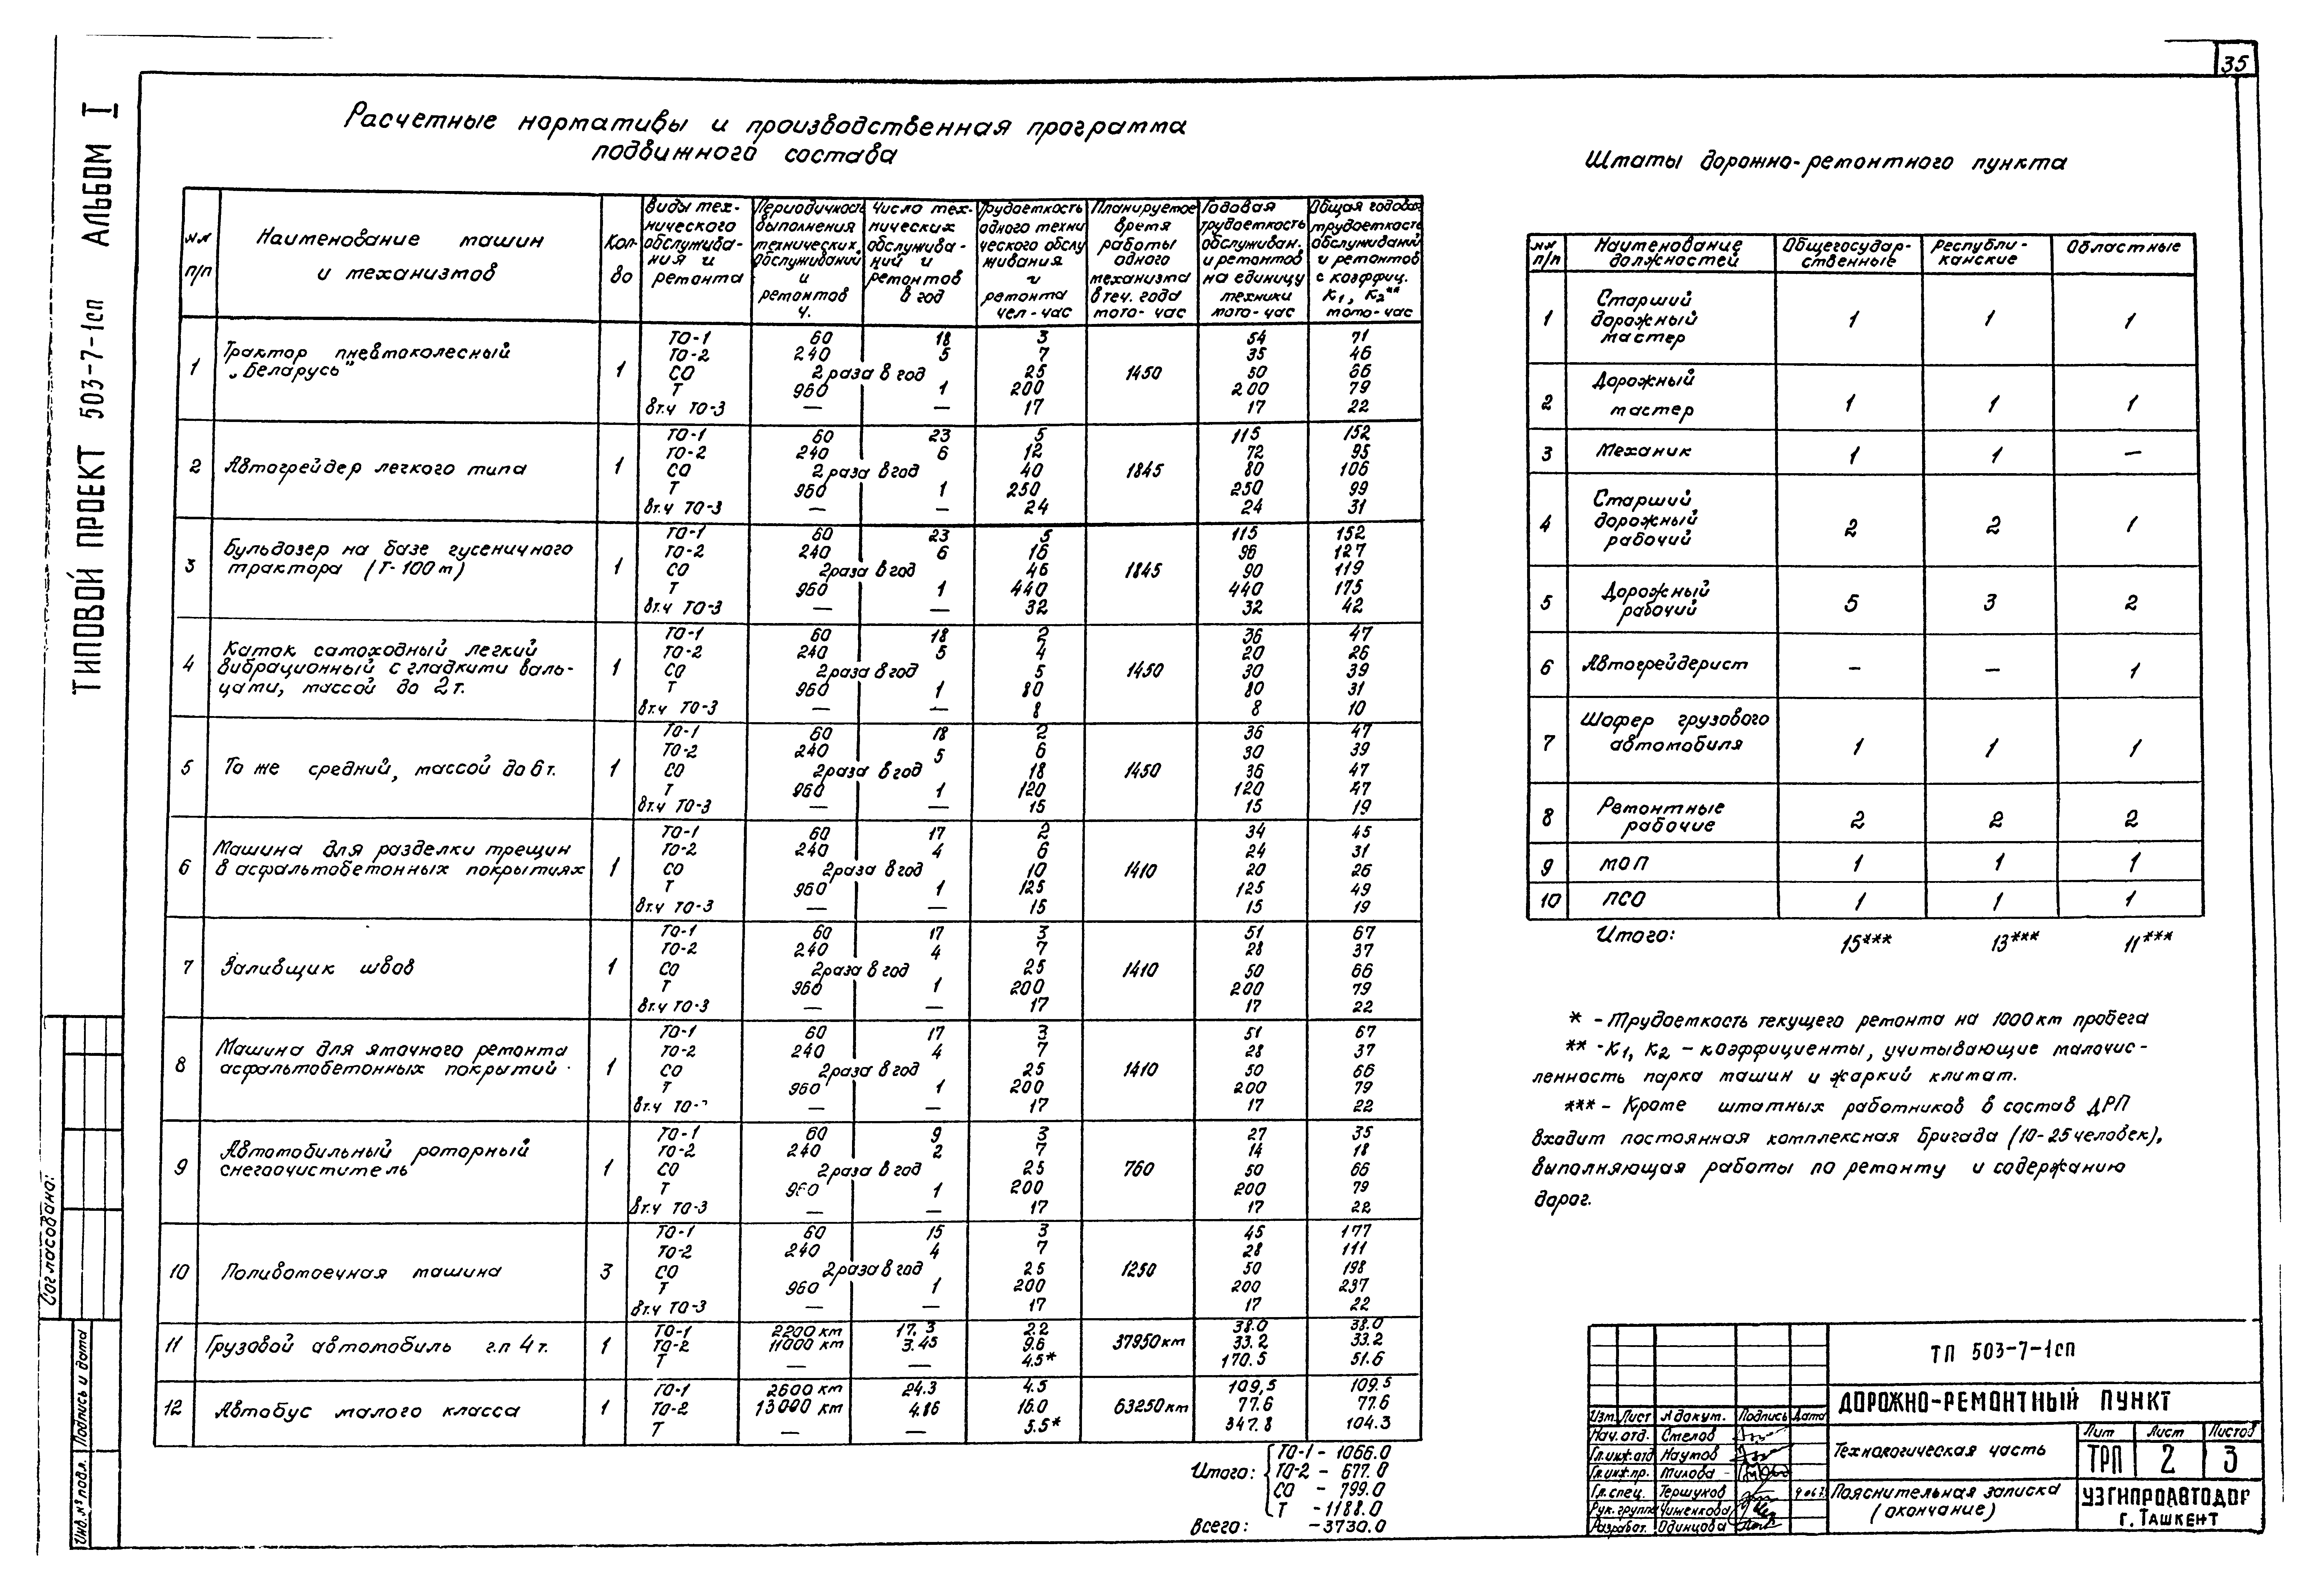 35
ТИПОВОЙ ПРОЕКТ 503-7-1сп АЛЬБОМ I
Расчетные нормативы и производственная программа
подвижного состава
№№ п/п
Наименование машин и механизмов
Кол-во
Виды технического обслуживания и ремонта
Периодичность выполнения технических обслуживаний и ремонтов ч.
Число технических обслуживаний и ремонтов в год
Трудоемкость одного технического обслуживания и ремонта чел-час
Планируемое время работы одного механизма в теч. года мото-час
Годовая трудоемкость обслуживан. и ремонтов на единицу техники мото-час
Общая годовая трудоемкость обслуживаний и ремонтов с коэффиц. К1, К2** мото-час
1 Трактор пневмоколесный „Беларусь" 1 1450
ТО-1 60 18 3 54 71
ТО-2 240 5 7 35 46
СО 2 раза в год 25 50 66
Т 960 1 200 200 79
вт.ч ТО-3 — — 17 17 22
2 Автогрейдер легкого типа 1 1845
ТО-1 60 23 5 115 152
ТО-2 240 6 12 72 95
СО 2 раза в год 40 80 106
Т 960 1 250 250 99
вт.ч ТО-3 — — 24 24 31
3 Бульдозер на базе гусеничного трактора (Т-100м) 1 1845
ТО-1 60 23 5 115 152
ТО-2 240 6 16 96 127
СО 2 раза в год 46 90 119
Т 960 1 440 440 175
вт.ч ТО-3 — — 32 32 42
4 Каток самоходный легкий вибрационный с гладкими вальцами, массой до 2т. 1 1450
ТО-1 60 18 2 36 47
ТО-2 240 5 4 20 26
СО 2 раза в год 5 30 39
Т 960 1 80 80 31
вт.ч ТО-3 — — 8 8 10
5 То же средний, массой до 6т. 1 1450
ТО-1 60 18 2 36 47
ТО-2 240 5 6 30 39
СО 2 раза в год 18 36 47
Т 960 1 120 120 47
вт.ч ТО-3 — — 15 15 19
6 Машина для разделки трещин в асфальтобетонных покрытиях 1 1410
ТО-1 60 17 2 34 45
ТО-2 240 4 6 24 31
СО 2 раза в год 10 20 26
Т 960 1 125 125 49
вт.ч ТО-3 — — 15 15 19
7 Заливщик швов 1 1410
ТО-1 60 17 3 51 67
ТО-2 240 4 7 28 37
СО 2 раза в год 25 50 66
Т 960 1 200 200 79
вт.ч ТО-3 — — 17 17 22
8 Машина для ямочного ремонта асфальтобетонных покрытий 1 1410
ТО-1 60 17 3 51 67
ТО-2 240 4 7 28 37
СО 2 раза в год 25 50 66
Т 960 1 200 200 79
вт.ч ТО- — — 17 17 22
9 Автомобильный роторный снегоочиститель 1 760
ТО-1 60 9 3 27 35
ТО-2 240 2 7 14 18
СО 2 раза в год 25 50 66
Т 960 1 200 200 79
вт.ч ТО-3 — — 17 17 22
10 Поливомоечная машина 3 1250
ТО-1 60 15 3 45 177
ТО-2 240 4 7 28 111
СО 2 раза в год 25 50 198
Т 960 1 200 200 237
вт.ч ТО-3 — — 17 17 22
11 Грузовой автомобиль г.п 4т. 1 37950км
ТО-1 2200 км 17.3 2.2 38.0 38.0
ТО-2 11000 км 3.45 9.6 33.2 33.2
Т — — 4.5* 170.5 51.6
12 Автобус малого класса 1 63250км
ТО-1 2600 км 24.3 4.5 109,5 109.5
ТО-2 13000 км 4.86 16.0 77.6 77.6
Т — — 5.5* 347.8 104.3
Итого: ТО-1 - 1066.0
ТО-2 - 677.0
СО - 799.0
Т - 1188.0
Всего: - 3730.0
Штаты дорожно-ремонтного пункта
№№ п/п Наименование должностей Общегосударственные Республиканские Областные
1 Старший дорожный мастер 1 1 1
2 Дорожный мастер 1 1 1
3 Механик 1 1 —
4 Старший дорожный рабочий 2 2 1
5 Дорожный рабочий 5 3 2
6 Автогрейдерист — — 1
7 Шофер грузового автомобиля 1 1 1
8 Ремонтные рабочие 2 2 2
9 МОП 1 1 1
10 ПСО 1 1 1
Итого: 15*** 13*** 11***
* - Трудоемкость текущего ремонта на 1000 км пробега
** - К1, К2 - коэффициенты, учитывающие малочис-
ленность парка машин и жаркий климат.
*** - Кроме штатных работников в состав ДРП
входит постоянная комплексная бригада (10-25 человек),
выполняющая работы по ремонту и содержанию
дорог.
Согласовано:
Подпись и дата
Инв.№ подл.
ТП 503-7-1сп
ДОРОЖНО-РЕМОНТНЫЙ ПУНКТ
Изм. Лист № докум. Подпись Дата
Нач. отд. Стелов
Гл.инж.отд Наумов
Гл.инж.пр. Милова
Гл.спец. Тершуков
Рук. группы Чиженкова
Разработ. Одинцова
Технологическая часть
Лит Лист Листов
ТРП 2 3
Пояснительная записка
(окончание)
УЗГИПРОАВТОДОР
г. Ташкент